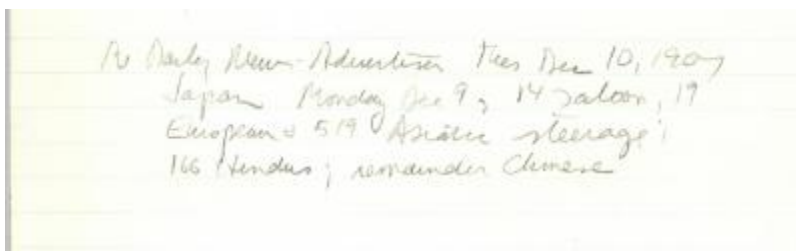 Daily News-Advertiser Tues Dec 10, 1907
Japan Monday Dec 9, 14 saloon, 19
European & 519 Asiatic steerage;
166 Hindus; remainder Chinese